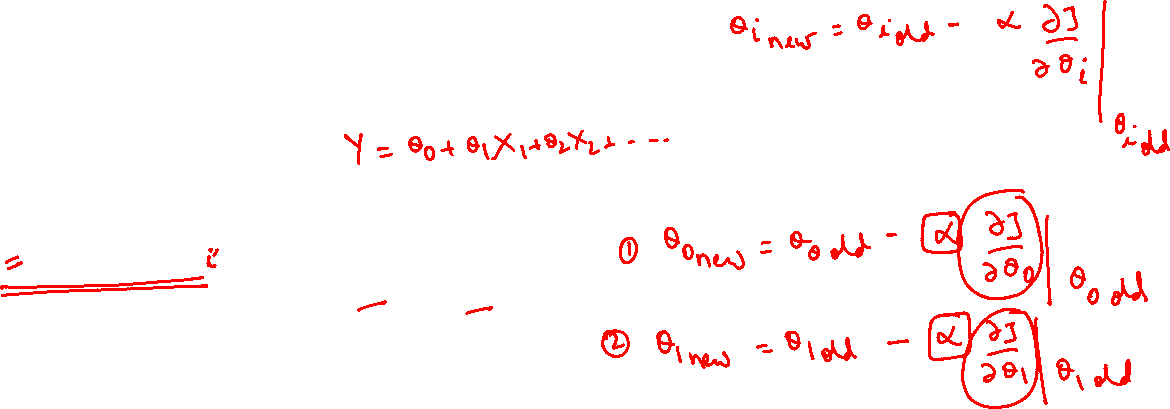 θi new = θi old - α ∂J/∂θi | θi old
Y = θ0 + θ1X1 + θ2X2 + - - - -
① θ0 new = θ0 old - α ∂J/∂θ0 | θ0 old
= i
② θ1 new = θ1 old - α ∂J/∂θ1 | θ1 old